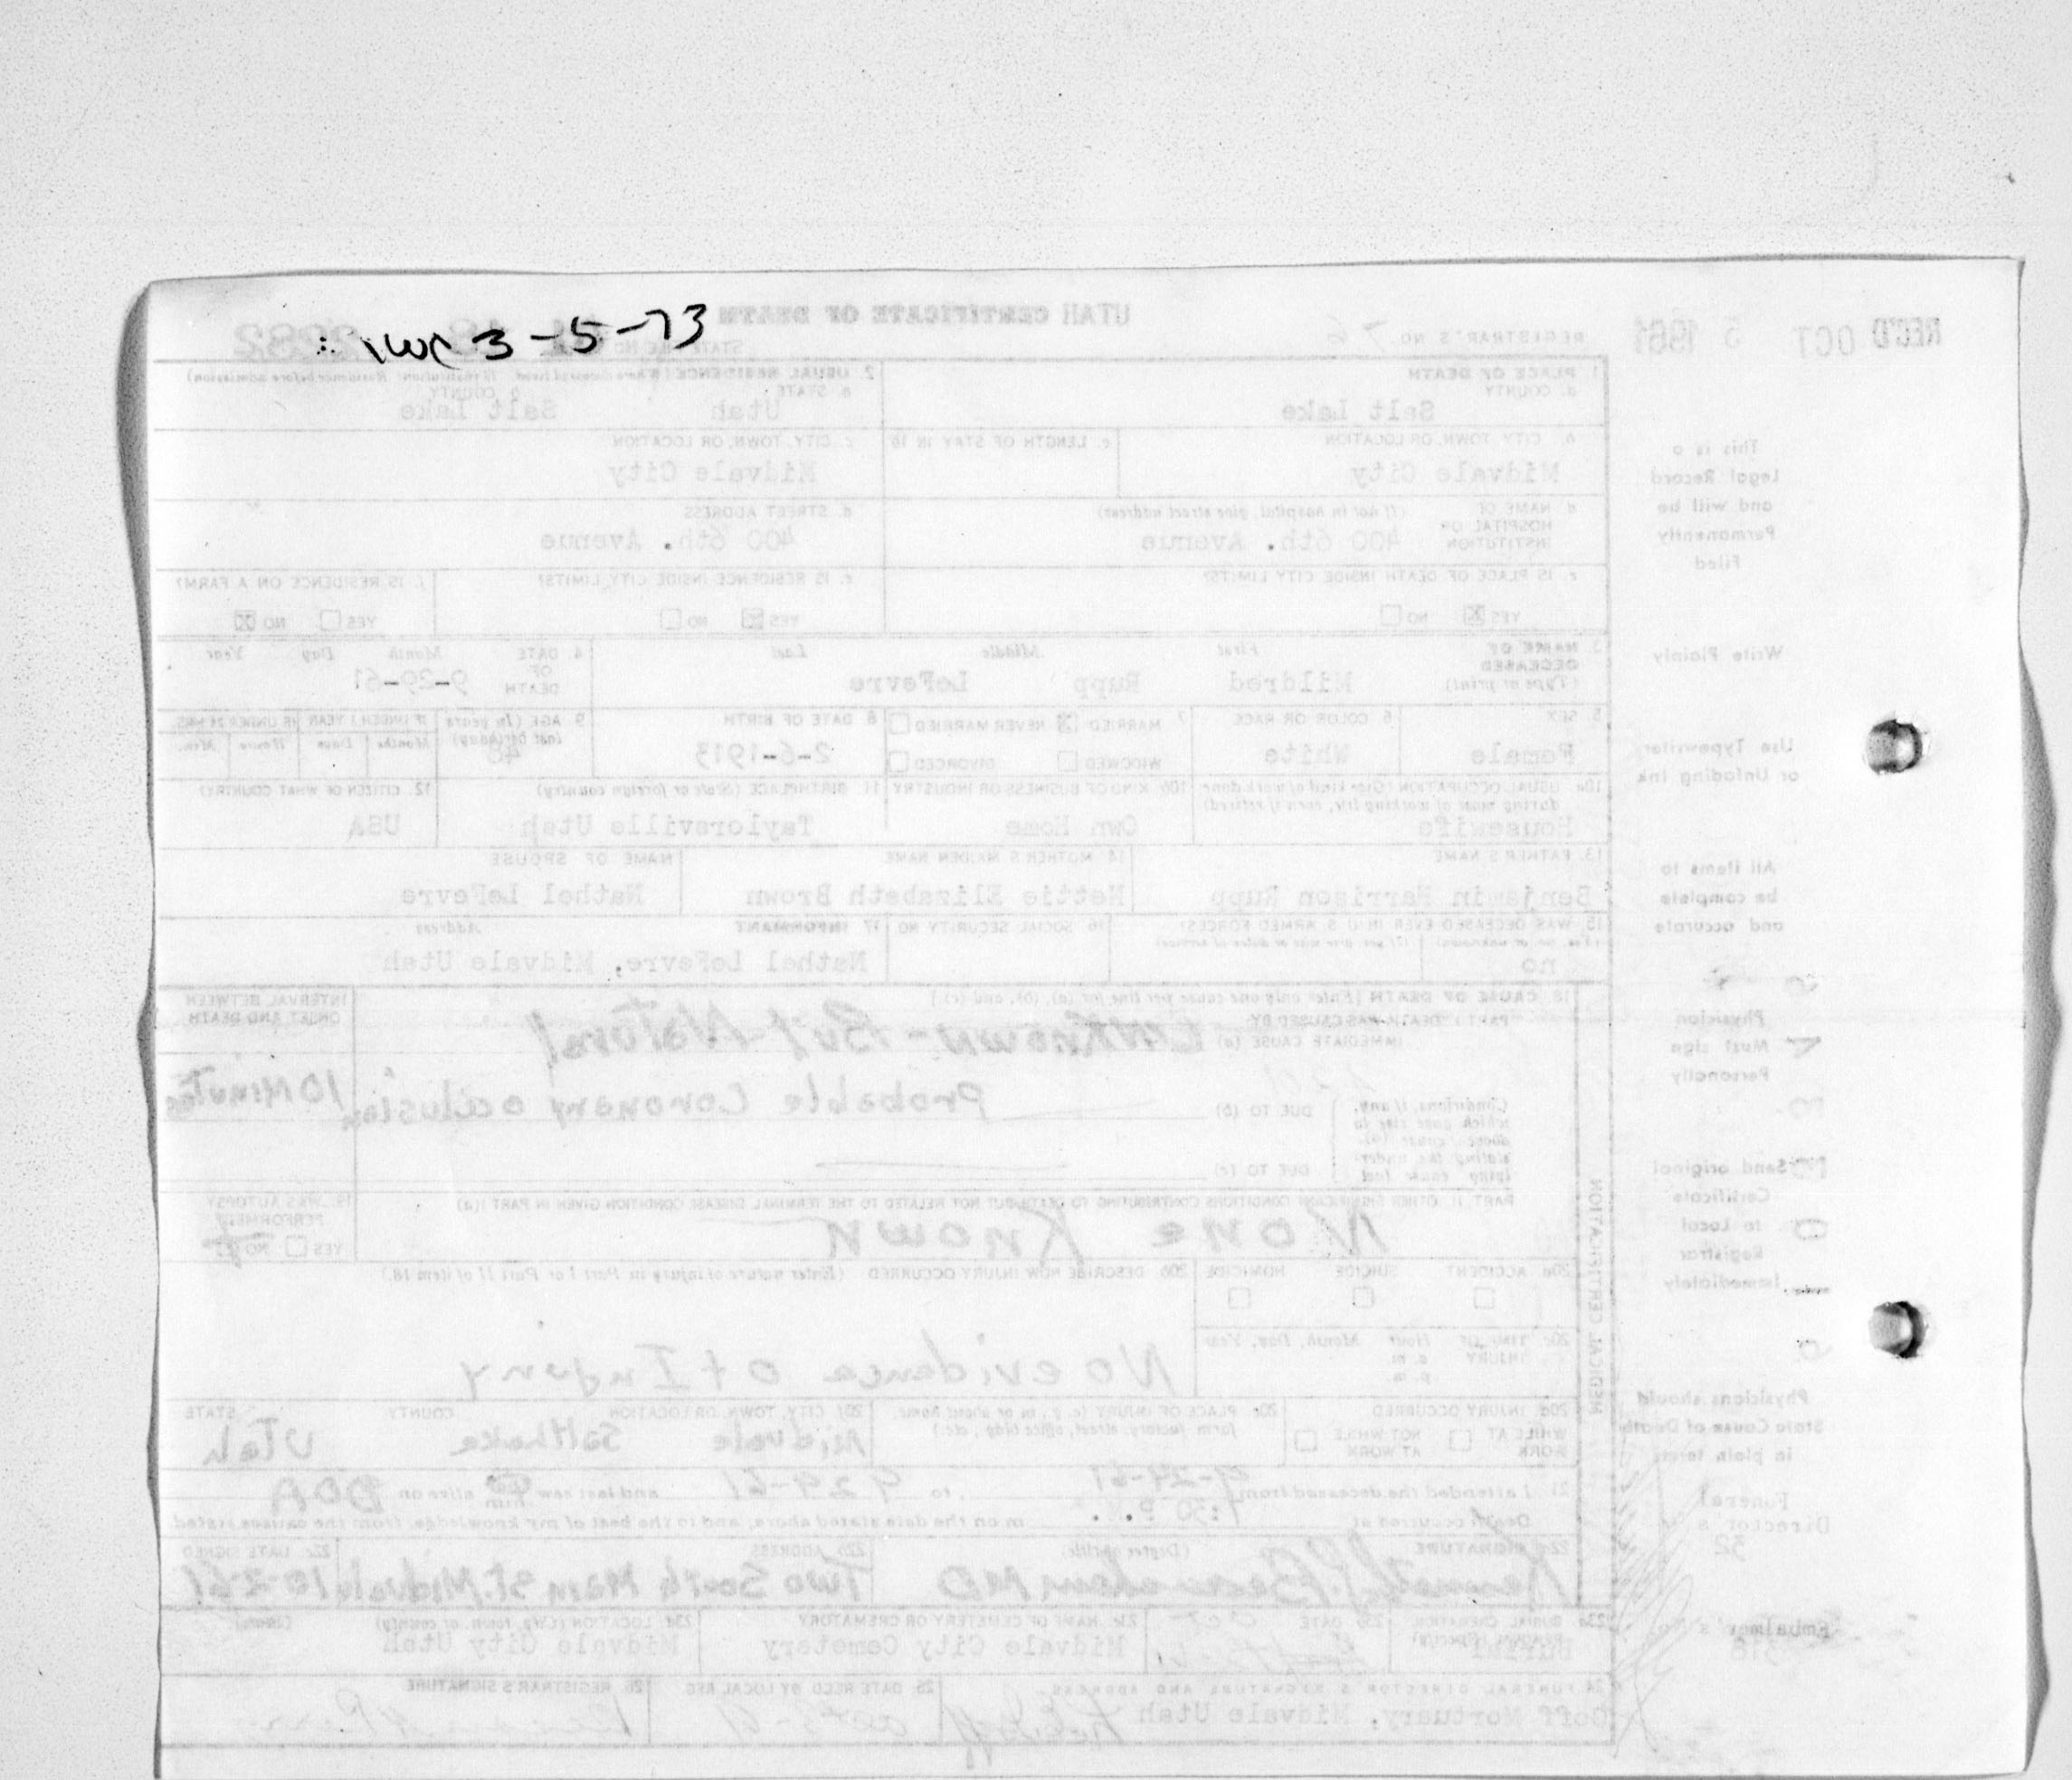 iwc 3-5-73
UTAH CERTIFICATE OF DEATH
REC'D OCT 5 1961
REGISTRAR'S NO
1 PLACE OF DEATH
a. COUNTY
Salt Lake
2. USUAL RESIDENCE (Where deceased lived. If institution: Residence before admission)
a. STATE
Utah
b COUNTY
Salt Lake
b. CITY, TOWN, OR LOCATION
Midvale City
c. LENGTH OF STAY IN 1b
c. CITY, TOWN, OR LOCATION
Midvale City
d. NAME OF HOSPITAL OR INSTITUTION
(If not in hospital, give street address)
400 6th. Avenue
d. STREET ADDRESS
400 6th. Avenue
e. IS PLACE OF DEATH INSIDE CITY LIMITS?
YES NO
e. IS RESIDENCE INSIDE CITY LIMITS?
YES NO
f. IS RESIDENCE ON A FARM?
YES NO
3. NAME OF DECEASED
(Type or print)
First Middle Last
Mildred Rupp LeFevre
4. DATE OF DEATH
Month Day Year
9-29-61
5 SEX
Female
6 COLOR OR RACE
White
7. MARRIED NEVER MARRIED
WIDOWED DIVORCED
8 DATE OF BIRTH
2-6-1913
9. AGE (In years last birthday)
48
IF UNDER 1 YEAR IF UNDER 24 HRS.
Months Days Hours Min.
10a USUAL OCCUPATION (Give kind of work done during most of working life, even if retired)
Housewife
10b KIND OF BUSINESS OR INDUSTRY
Own Home
11. BIRTHPLACE (State or foreign country)
Taylorsville Utah
12. CITIZEN OF WHAT COUNTRY?
USA
13. FATHER'S NAME
Benjamin Harrison Rupp
14 MOTHER'S MAIDEN NAME
Nettie Elizabeth Brown
NAME OF SPOUSE
Nathel LeFevre
15. WAS DECEASED EVER IN U S ARMED FORCES?
(Yes, no, or unknown) (If yes, give war or dates of service)
no
16 SOCIAL SECURITY NO
17 INFORMANT Address
Nathel LeFevre, Midvale Utah
MEDICAL CERTIFICATION
18 CAUSE OF DEATH [Enter only one cause per line for (a), (b), and (c).]
PART I DEATH WAS CAUSED BY
IMMEDIATE CAUSE (a)
Unknown - But Natural
INTERVAL BETWEEN ONSET AND DEATH
Conditions, if any, which gave rise to above cause (a), stating the underlying cause last
DUE TO (b)
Probable Coronary occlusion
10 Minutes
DUE TO (c)
PART II OTHER SIGNIFICANT CONDITIONS CONTRIBUTING TO DEATH BUT NOT RELATED TO THE TERMINAL DISEASE CONDITION GIVEN IN PART I(a)
None Known
19. WAS AUTOPSY PERFORMED?
YES NO
20a ACCIDENT SUICIDE HOMICIDE
20b DESCRIBE HOW INJURY OCCURRED (Enter nature of injury in Part I or Part II of item 18.)
20c TIME OF INJURY
Hour Month, Day, Year
a. m.
p. m.
No evidence of Injury
20d INJURY OCCURRED
WHILE AT WORK NOT WHILE AT WORK
20e. PLACE OF INJURY (e. g., in or about home, farm, factory, street, office bldg., etc.)
20f CITY, TOWN, OR LOCATION COUNTY STATE
Midvale Salt Lake Utah
21 I attended the deceased from 9-29-61, to 9 29-61 and last saw him alive on DOA
Death occurred at 7:30 P. m on the date stated above, and to the best of my knowledge, from the causes stated
22a SIGNATURE (Degree or title)
MD
22b ADDRESS
Two South Main St. Midvale
22c DATE SIGNED
10-2-61
23a BURIAL, CREMATION, REMOVAL (Specify)
Burial
23b DATE
23c NAME OF CEMETERY OR CREMATORY
Midvale City Cemetery
23d. LOCATION (City, town, or county) (State)
Midvale City Utah
24 FUNERAL DIRECTOR'S SIGNATURE AND ADDRESS
Goff Mortuary, Midvale Utah
25 DATE RECD BY LOCAL REG
26. REGISTRAR'S SIGNATURE
This is a
Legal Record
and will be
Permanently
Filed
Write Plainly
Use Typewriter
or Unfading Ink
All items to
be complete
and accurate
Physician
Must sign
Personally
Send original
Certificate
to Local
Registrar
Immediately
Physicians should
State Cause of Death
in plain terms
Funeral
Director's
32
Embalmer's No.